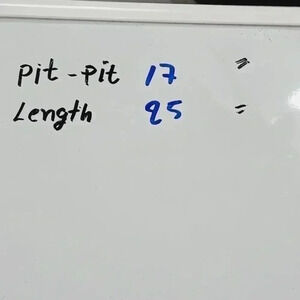 pit-pit 17 "
Length 25 =